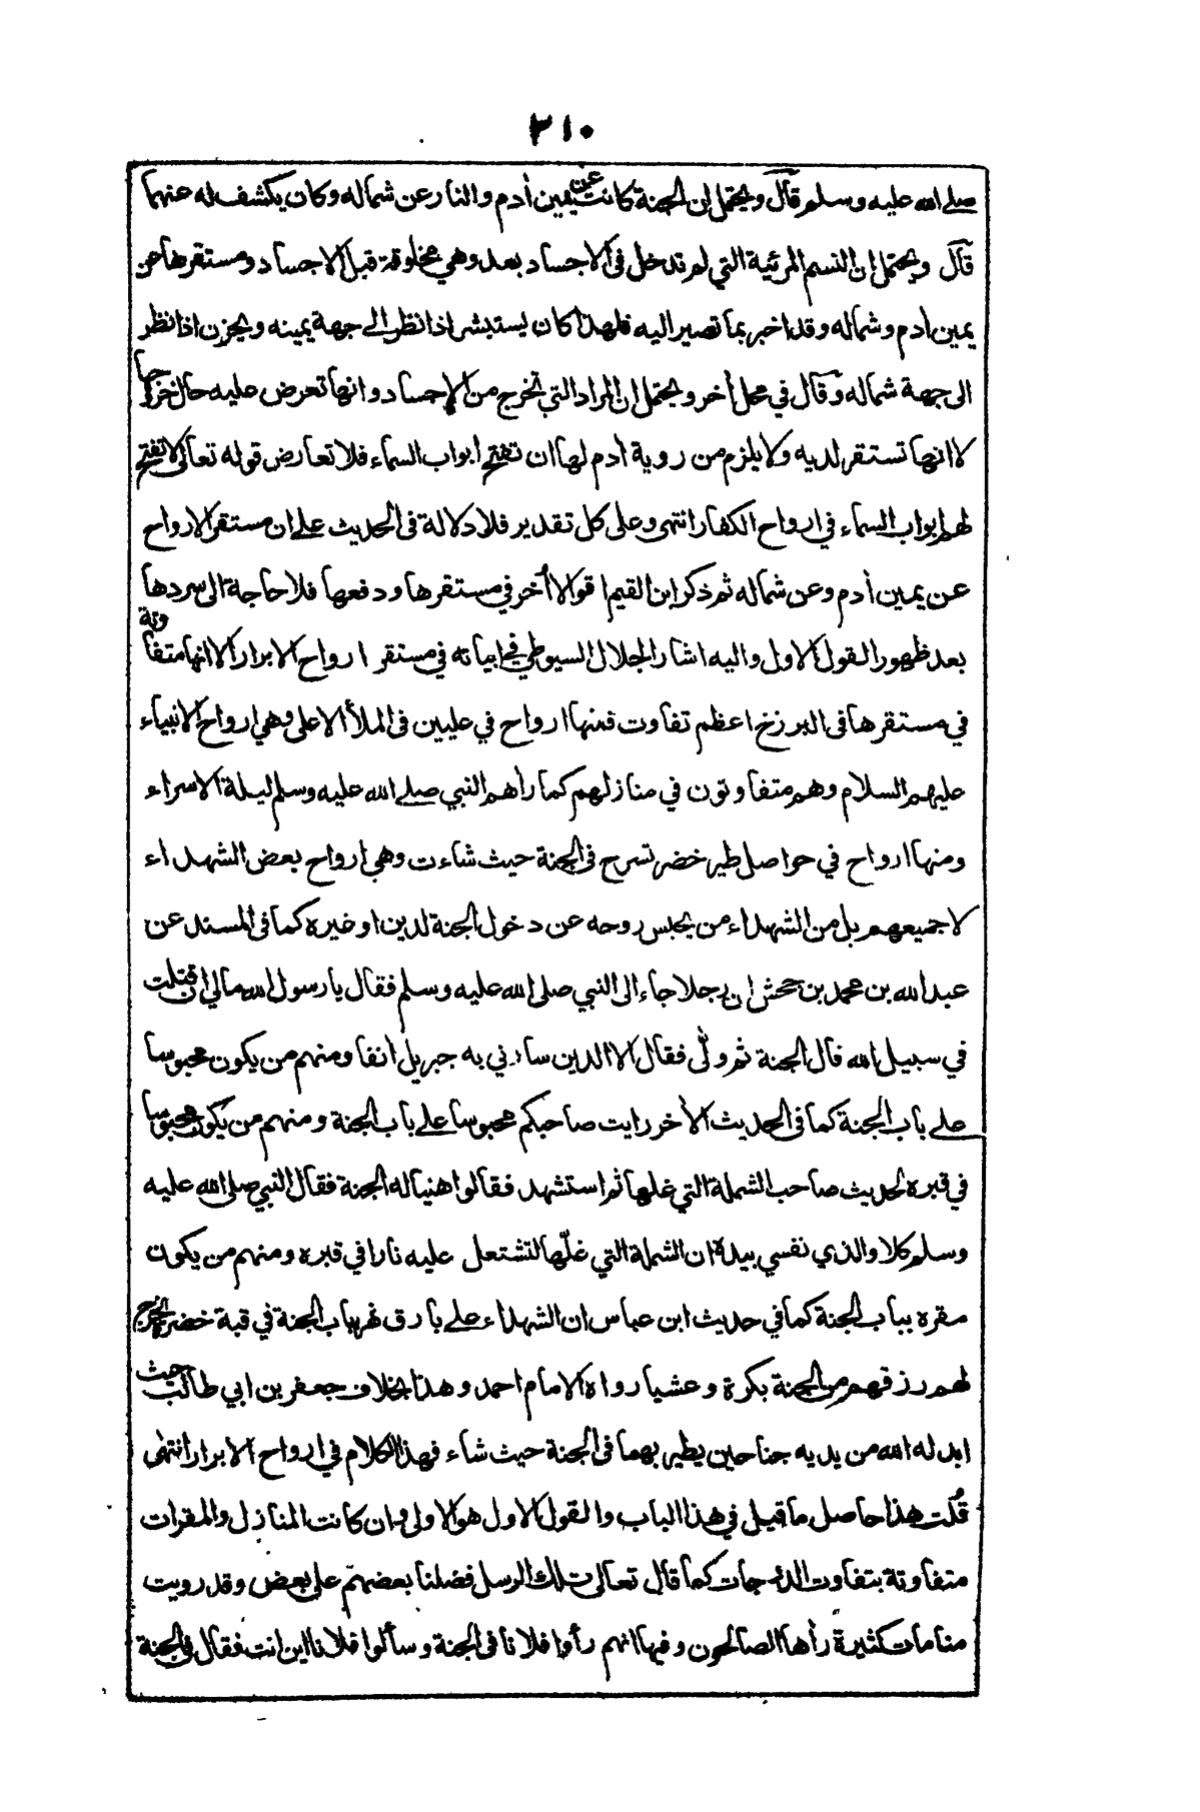 ٣١٠
صلى الله عليه وسلم قال ويحتمل ان الجنة كانت عن يمين أدم والنار عن شماله وكان يكشف له عنهما
قال ويحتمل ان النسم المرئية التي لم تدخل فى الاجساد بعد وهي مخلوقة قبل الاجساد ومستقرها عن
يمين ادم وشماله وقد اخبر بما تصير اليه فلهذا كان يستبشر اذا نظر الى جهة يمينه ويحزن اذا نظر
الى جهة شماله وقال في محل أخر ويحتمل ان المراد التي تخرج من الاجساد وانها تعرض عليه حال خروجها
لا انها تستقر لديه ولا يلزم من روية ادم لها ان تفتح ابواب السماء فلا تعارض قوله تعالى لا تفتح
لهم ابواب السماء في ارواح الكفار انتهى وعلى كل تقدير فلا دلالة فى الحديث على ان مستقر الارواح
عن يمين أدم وعن شماله ثم ذكر ابن القيم اقوالا أخر في مستقرها ودفعها فلا حاجة الى سردها
بعد ظهور القول الاول واليه اشار الجلال السيوطي في ابياته في مستقر ارواح الابرار الا انها متفاوتة
في مستقرها فى البرزخ اعظم تفاوت فمنها ارواح في عليين فى الملأ الاعلى وهي ارواح الانبياء
عليهم السلام وهم متفاوتون في منازلهم كما رأهم النبي صلى الله عليه وسلم ليلة الاسراء
ومنها ارواح في حواصل طير خضر تسرح فى الجنة حيث شاءت وهي ارواح بعض الشهداء
لا جميعهم بل من الشهداء من يحبس روحه عن دخول الجنة لدين او غيره كما فى المسند عن
عبد الله بن محمد بن جحش ان رجلا جاء الى النبي صلى الله عليه وسلم فقال يا رسول الله مالي ان قتلت
في سبيل الله قال الجنة ثم ولّى فقال الا الدين سارني به جبريل أنفا ومنهم من يكون محبوسا
على باب الجنة كما فى الحديث الأخر رايت صاحبكم محبوسا على باب الجنة ومنهم من يكون محبوسا
في قبره لحديث صاحب الشملة التي غلها ثم استشهد فقالوا هنيا له الجنة فقال النبي صلى الله عليه
وسلم كلا والذي نفسي بيده ان الشملة التي غلّها لتشتعل عليه نارا في قبره ومنهم من يكون
مقره بباب الجنة كما في حديث ابن عباس ان الشهداء على بارق نهر بباب الجنة في قبة خضر يخرج
لهم رزقهم من الجنة بكرة وعشيا رواه الامام احمد وهذا بخلاف جعفر بن ابي طالب حيث
ابدله الله من يديه جناحين يطير بهما فى الجنة حيث شاء فهذا الكلام في ارواح الابرار انتهى
قُلت هذا حاصل ما قيل في هذا الباب والقول الاول هو الاولى وان كانت المنازل والمقرات
متفاوتة بتفاوت الدرجات كما قال تعالى تلك الرسل فضلنا بعضهم على بعض وقد رويت
منامات كثيرة رأها الصالحون وفيها انهم رأوا فلانا فى الجنة وسألوا فلانا اين انت فقال فى الجنة